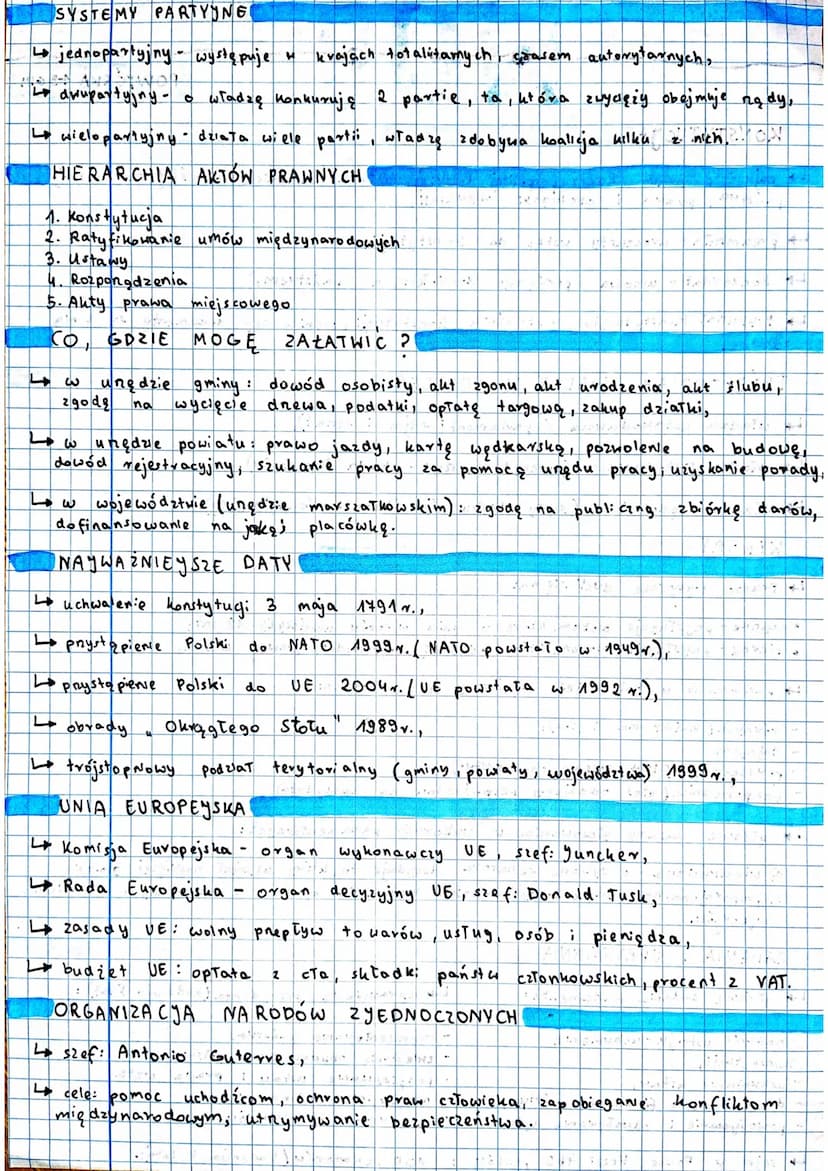 SYSTEMY PARTYJNE
↳ jednopartyjny - występuje w krajach totalitarnych, czasem autorytarnych,
↳ dwupartyjny - o władzę konkurują 2 partie, ta, która zwycięży obejmuje rządy,
↳ wielopartyjny - działa wiele partii, władzę zdobywa koalicja kilku z nich.
HIERARCHIA AKTÓW PRAWNYCH
1. Konstytucja
2. Ratyfikowanie umów międzynarodowych
3. Ustawy
4. Rozporządzenia
5. Akty prawa miejscowego
CO, GDZIE MOGĘ ZAŁATWIĆ ?
↳ w urzędzie gminy: dowód osobisty, akt zgonu, akt urodzenia, akt ślubu,
zgodę na wycięcie drzewa, podatki, opłatę targową, zakup działki,
↳ w urzędzie powiatu: prawo jazdy, kartę wędkarską, pozwolenie na budowę,
dowód rejestracyjny, szukanie pracy za pomocą urzędu pracy, uzyskanie porady,
↳ w województwie (urzędzie marszałkowskim): zgodę na publiczną zbiórkę darów,
dofinansowanie na jakąś placówkę.
NAJWAŻNIEJSZE DATY
↳ uchwalenie konstytucji 3 maja 1791 r.,
↳ przystąpienie Polski do NATO 1999r. (NATO powstało w 1949r.),
↳ przystąpienie Polski do UE 2004r. (UE powstała w 1992 r.),
↳ obrady „Okrągłego Stołu" 1989r.,
↳ trójstopniowy podział terytorialny (gminy, powiaty, województwa) 1999r.,
UNIA EUROPEJSKA
↳ Komisja Europejska - organ wykonawczy UE, szef: Juncker,
↳ Rada Europejska - organ decyzyjny UE, szef: Donald Tusk,
↳ zasady UE: wolny przepływ towarów, usług, osób i pieniądza,
↳ budżet UE: opłata z cła, składki państw członkowskich, procent z VAT.
ORGANIZACJA NARODÓW ZJEDNOCZONYCH
↳ szef: Antonio Guterres,
↳ cele: pomoc uchodźcom, ochrona praw człowieka, zapobieganie konfliktom
międzynarodowym, utrzymywanie bezpieczeństwa.